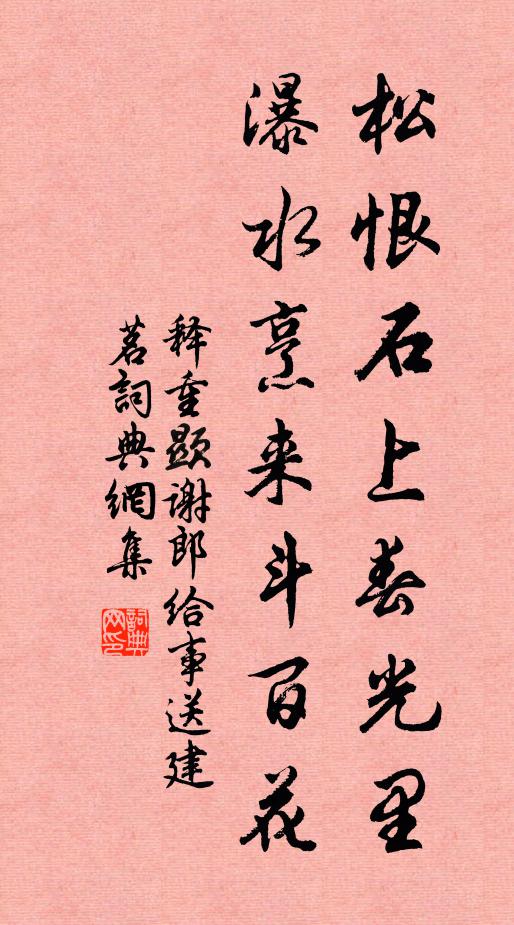 松恨石上春光里
瀑水烹来斗百花
释重显谢郎给事送建
茗詞典網集
詞典网印